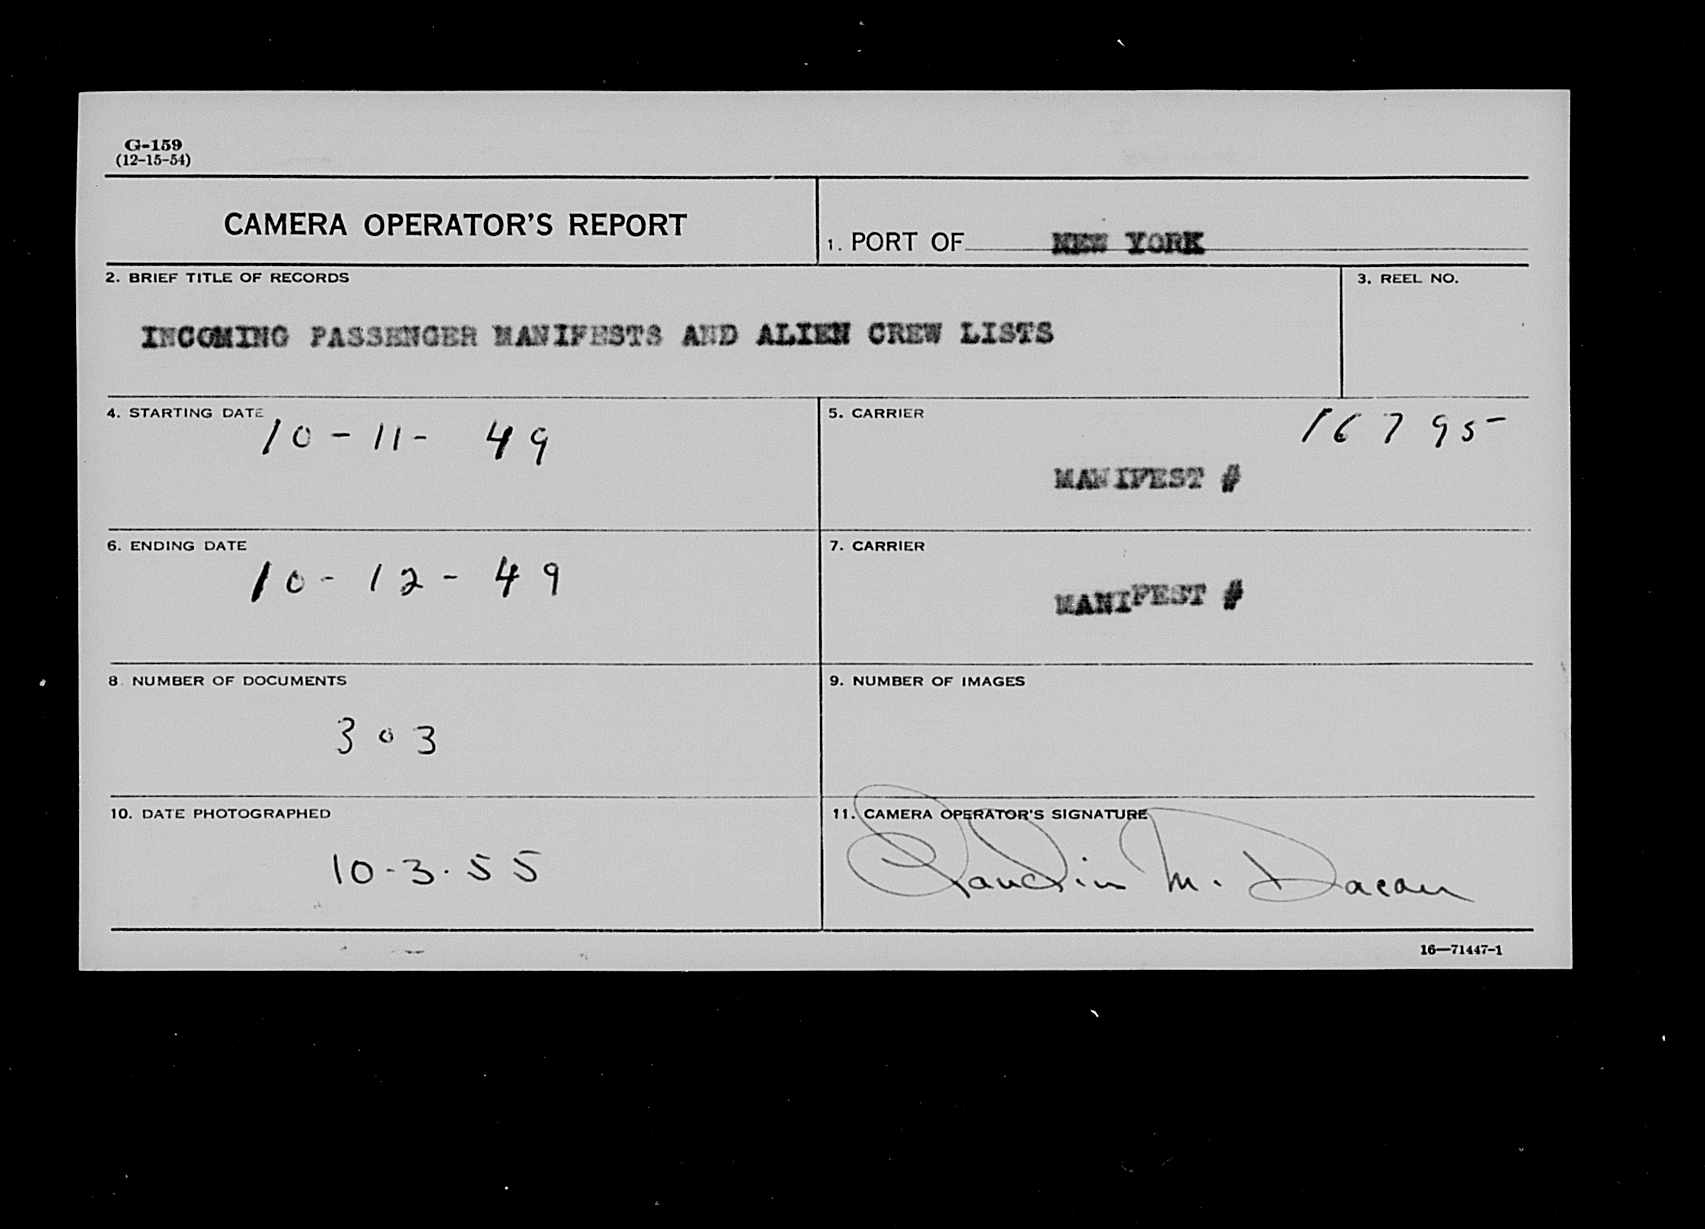 G-159
(12-15-54)
CAMERA OPERATOR'S REPORT
1. PORT OF NEW YORK
2. BRIEF TITLE OF RECORDS
3. REEL NO.
INCOMING PASSENGER MANIFESTS AND ALIEN CREW LISTS
4. STARTING DATE
10-11-49
5. CARRIER
16795
MANIFEST #
6. ENDING DATE
10-12-49
7. CARRIER
MANIFEST #
8. NUMBER OF DOCUMENTS
303
9. NUMBER OF IMAGES
10. DATE PHOTOGRAPHED
10-3.55
11. CAMERA OPERATOR'S SIGNATURE
M.
16—71447-1